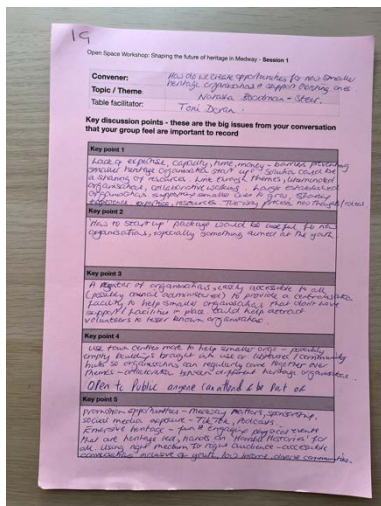 19
Open Space Workshop: Shaping the future of heritage in Medway - Session 1
Convener: How do we create opportunities for new smaller
heritage organisations & support existing ones
Topic / Theme Natasha - Steer.
Table facilitator: Toni
Key discussion points - these are the big issues from your conversation
that your group feel are important to record
Key point 1
Lack of expertise, capacity, time, money - barriers preventing
smaller heritage organisation start up - Solution could be
a sharing of resources. Link through themes, likeminded
organisations, collaborative working. Large established
organisations supporting smaller ones to grow, sharing
expertise, resources. Two way process new thoughts/ideas
Key point 2
'How to start up' package would be useful to new
organisations, especially something aimed at the youth
Key point 3
A Register of organisations, easily accessible to all
(possibly council administered) to provide a centralised
facility to help smaller organisations that don't have
support / facilities in place. Could help attract
volunteers to lesser known organisations.
Key point 4
Use town centres more to help smaller orgs - possibly
empty buildings brought into use as cultural / community
hubs so organisations can regularly come together over
themes - different heritage organisations.
Open to Public anyone can attend & be part of
Key point 5
Promotion opportunities - Medway Matters, sponsorship,
social media exposure - TikTok, Podcasts.
Emersive heritage - fun & engaging events
that are heritage led, hands on 'Horrible Histories' for
all. Using right medium to right audience - accessible
inclusive of youth, low income, diverse communities.